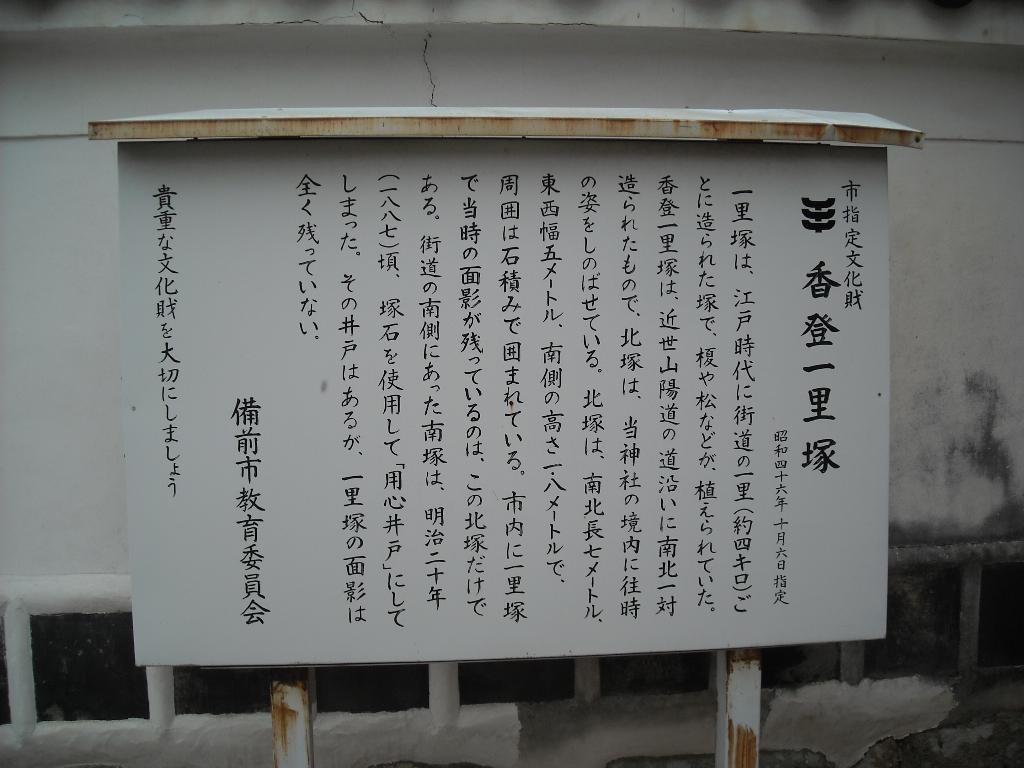 市指定文化財
香登一里塚
昭和四十六年十月六日指定
一里塚は、江戸時代に街道の一里（約四キロ）ご
とに造られた塚で、榎や松などが、植えられていた。
香登一里塚は、近世山陽道の道沿いに南北一対
造られたもので、北塚は、当神社の境内に往時
の姿をしのばせている。北塚は、南北長七メートル、
東西幅五メートル、南側の高さ一・八メートルで、
周囲は石積みで囲まれている。市内に一里塚
で当時の面影が残っているのは、この北塚だけで
ある。街道の南側にあった南塚は、明治二十年
（一八八七）頃、塚石を使用して「用心井戸」にして
しまった。その井戸はあるが、一里塚の面影は
全く残っていない。
備前市教育委員会
貴重な文化財を大切にしましょう